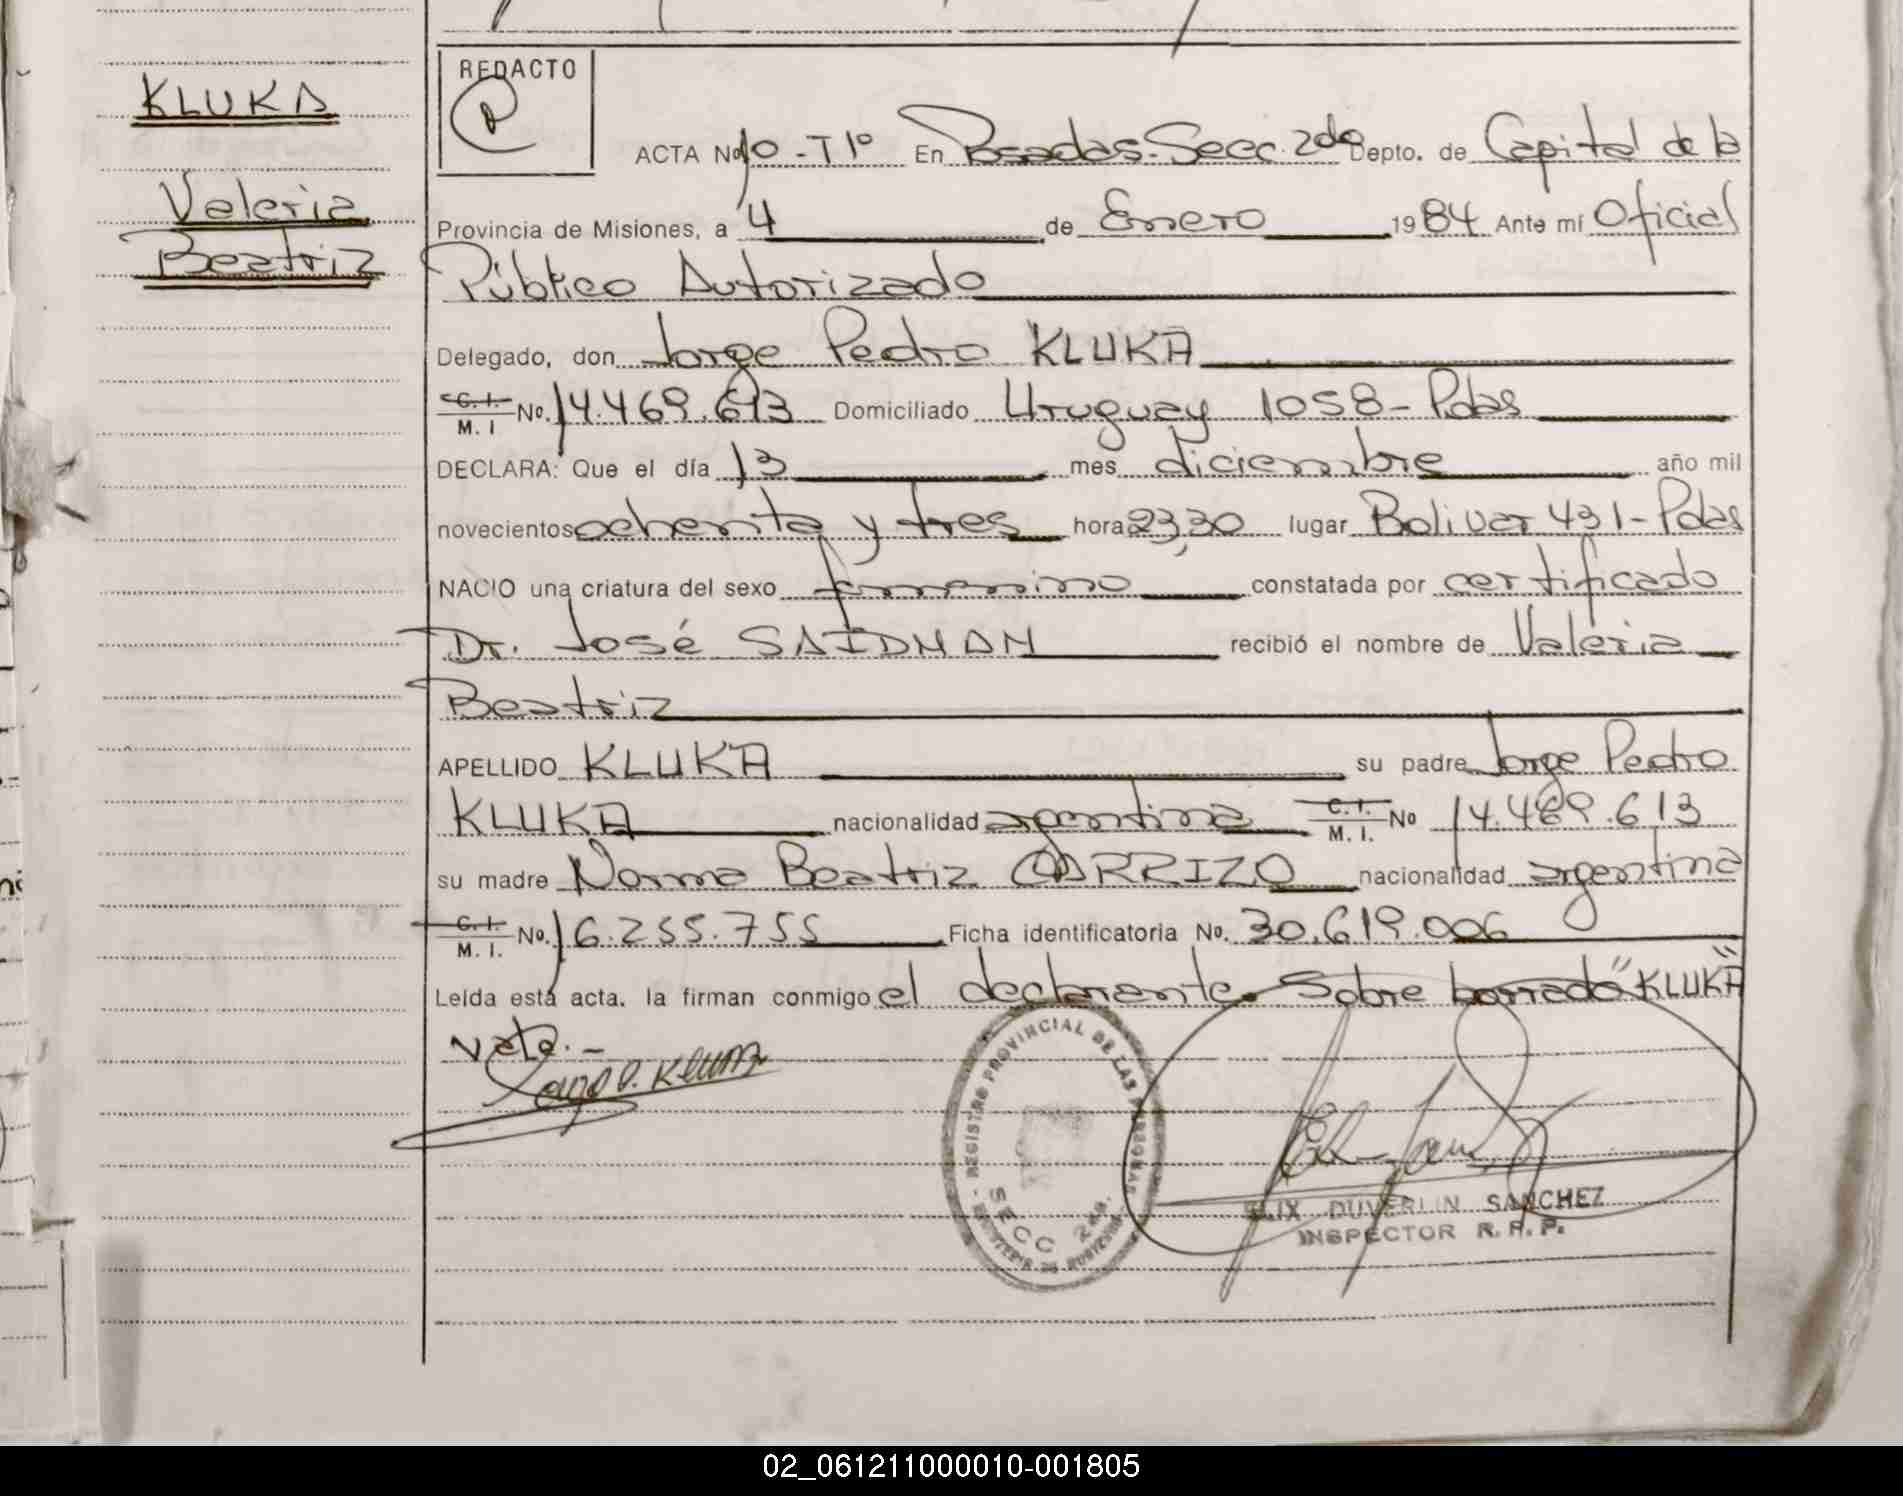 KLUKA
Valeria
Beatriz
REDACTO
ACTA No 10-T1° En Posadas-Secc. 2da Depto. de Capital de la
Provincia de Misiones, a 4 de Enero 1984 Ante mí Oficial
Público Autorizado
Delegado, don Jorge Pedro KLUKA
C.I. M. I No. 14.469.613 Domiciliado Uruguay 1058-Pdas
DECLARA: Que el día 13 mes diciembre año mil
novecientos ochenta y tres hora 23,30 lugar Bolivar 431-Pdas
NACIO una criatura del sexo femenino constatada por certificado
Dr. José SAIDMAN recibió el nombre de Valeria
Beatriz
APELLIDO KLUKA su padre Jorge Pedro
KLUKA nacionalidad argentina C.I. M. I. No 14.469.613
su madre Norma Beatriz CARRIZO nacionalidad argentina
C.I. M. I. No. 16.255.755 Ficha identificatoria No. 30.619.006
Leída está acta. la firman conmigo el declarante. Sobre borrado "KLUKA"
Vale.-
Jorge P. Kluka
REGISTRO PROVINCIAL DE LAS PERSONAS
SECC 2da.
DUVERLIN SANCHEZ
INSPECTOR R. P. P.
02_061211000010-001805